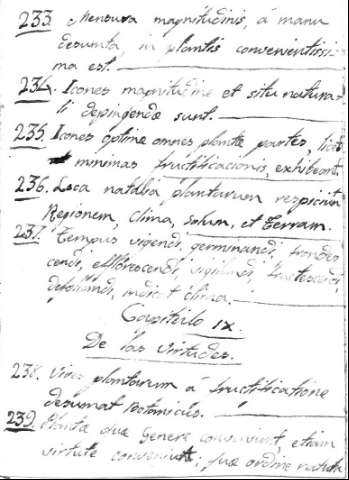 233. Mensura magnitudinis, á manu
desumta, in plantis convenientissi-
ma est.
234. Icones magnitudine et situ natura-
li depingendæ sunt.
235. Icones optimæ omnes plantæ partes, licet
minimas fructificacionis, exhibeant.
236. Loca natalia plantarum respiciunt
Regionem, Clima, Solum, et Terram.
237. Tempus vigendi, germinandi, frondes-
cendi, efflorescendi, vigilandi, fructescendi,
defoliandi, indicat clima.
Capitulo IX.
De las virtudes.
238. Vires plantarum á fructificatione
desumat Botanicus.
239. Plantæ quæ Genere conveniunt, etiam
virtute conveniunt; quæ ordine naturali